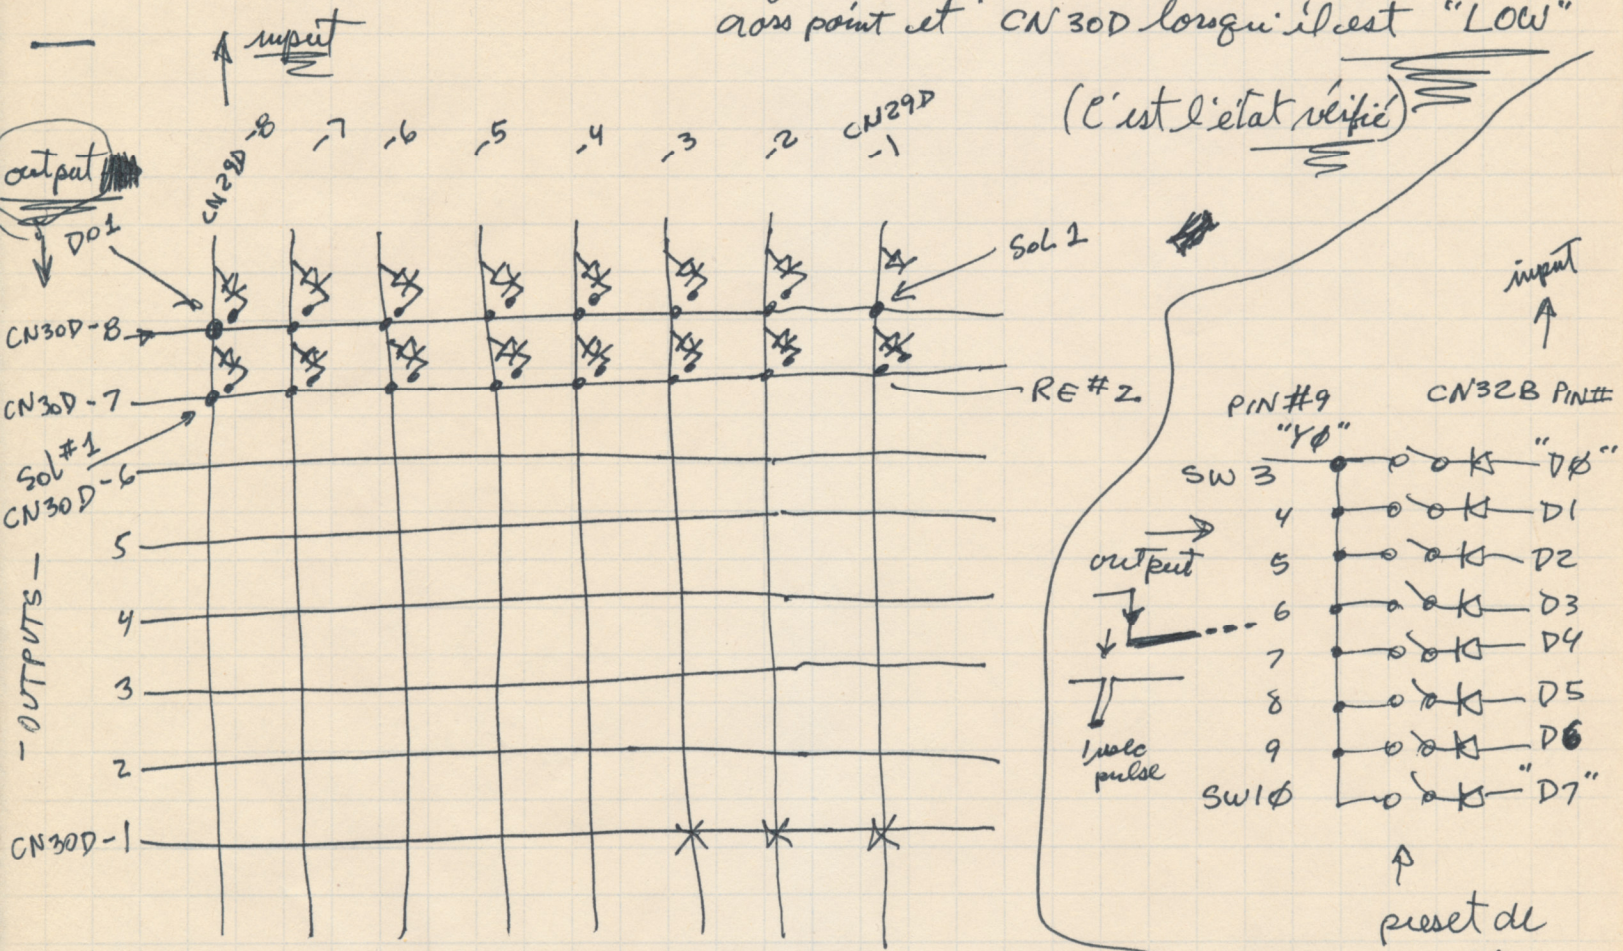 cross point et CN30D lorsqu'il est "LOW"
(C'est l'état vérifié)
input
output
CN29D -8 ,7 ,6 ,5 ,4 ,3 ,2 CN29D -1
DO1
SOL 1
CN30D-8
CN30D-7
RE #2
SOL #1
CN30D-6
5
4
3
2
CN30D-1
-OUTPUTS-
input
PIN #9 CN32B PIN#
"YØ"
SW 3 "DØ"
4 D1
5 D2
6 D3
7 D4
8 D5
9 D6
SW1Ø "D7"
output
pulse
preset de